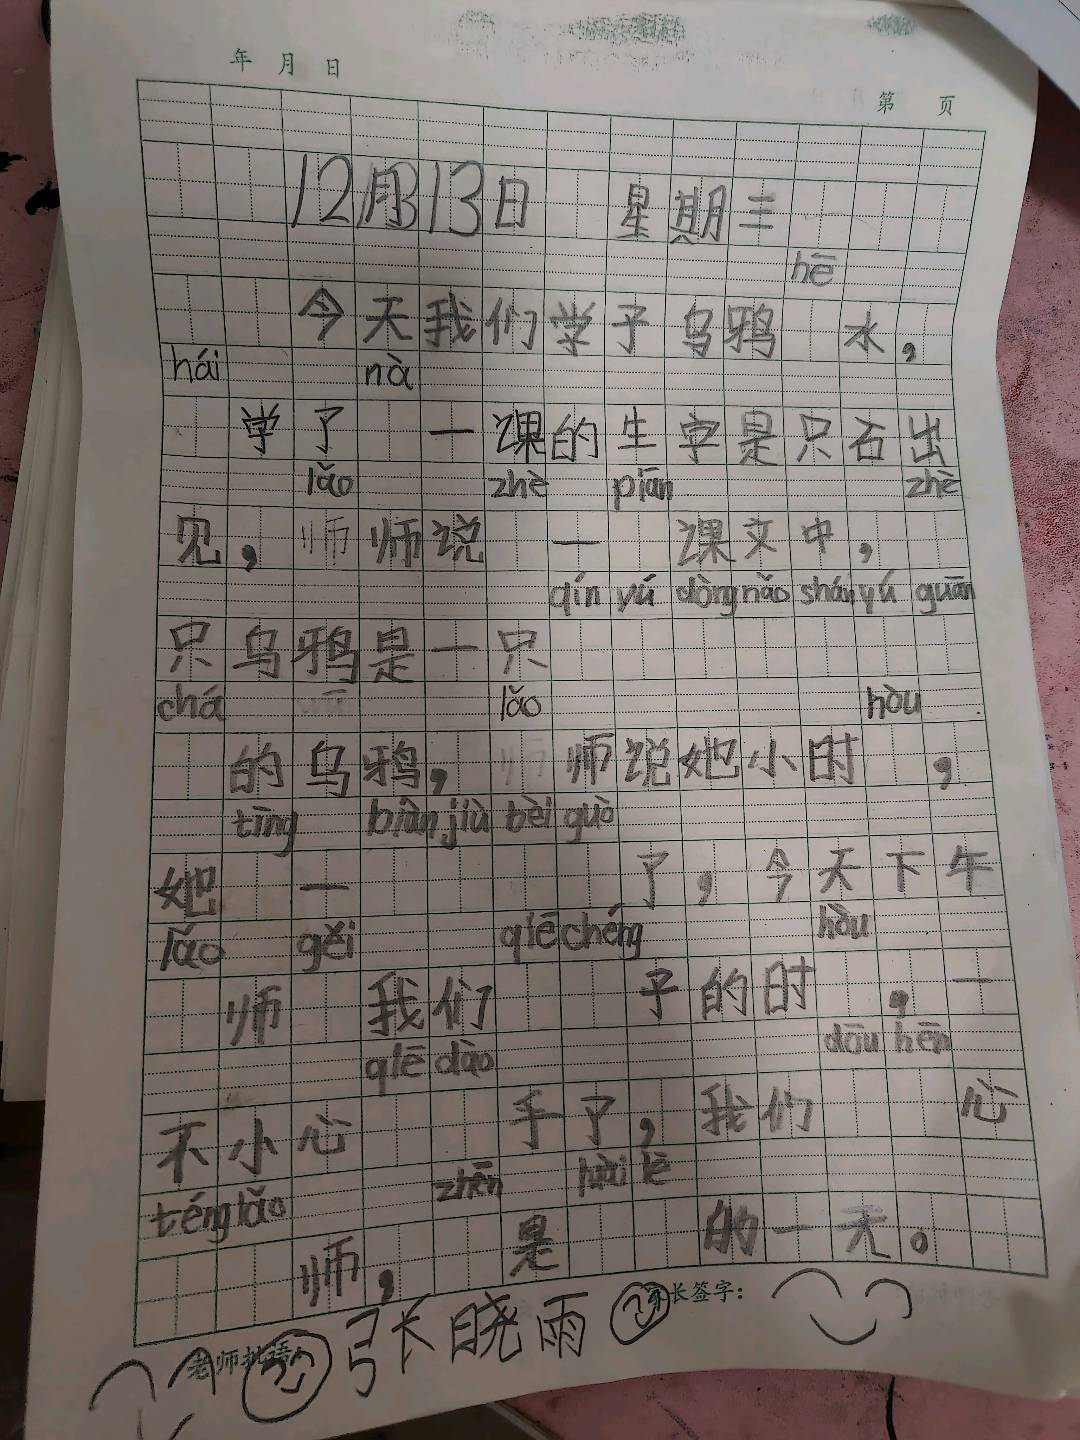 年 月 日
第 页
12月13日 星期三
hē
今天我们学子乌鸦 水，
hái nà
学了 一课的生字是只石出
lǎo zhè piān zhè
见，师师说 一 课文中，
qín yú dòng nǎo sháy yú guān
只乌鸦是一只
chá lǎo hòu
的乌鸦，师师说她小时 ，
tīng biàn jiù bèi guò
她 一 了，今天下午
lǎo gěi qiē chéng hòu
师 我们 子的时 ，一
qiē dào dōu hēn
不小心 手了，我们 心
téng lǎo zhēn kuài lè
师， 是 的一天。
老师批语：
家长签字：
张晓雨